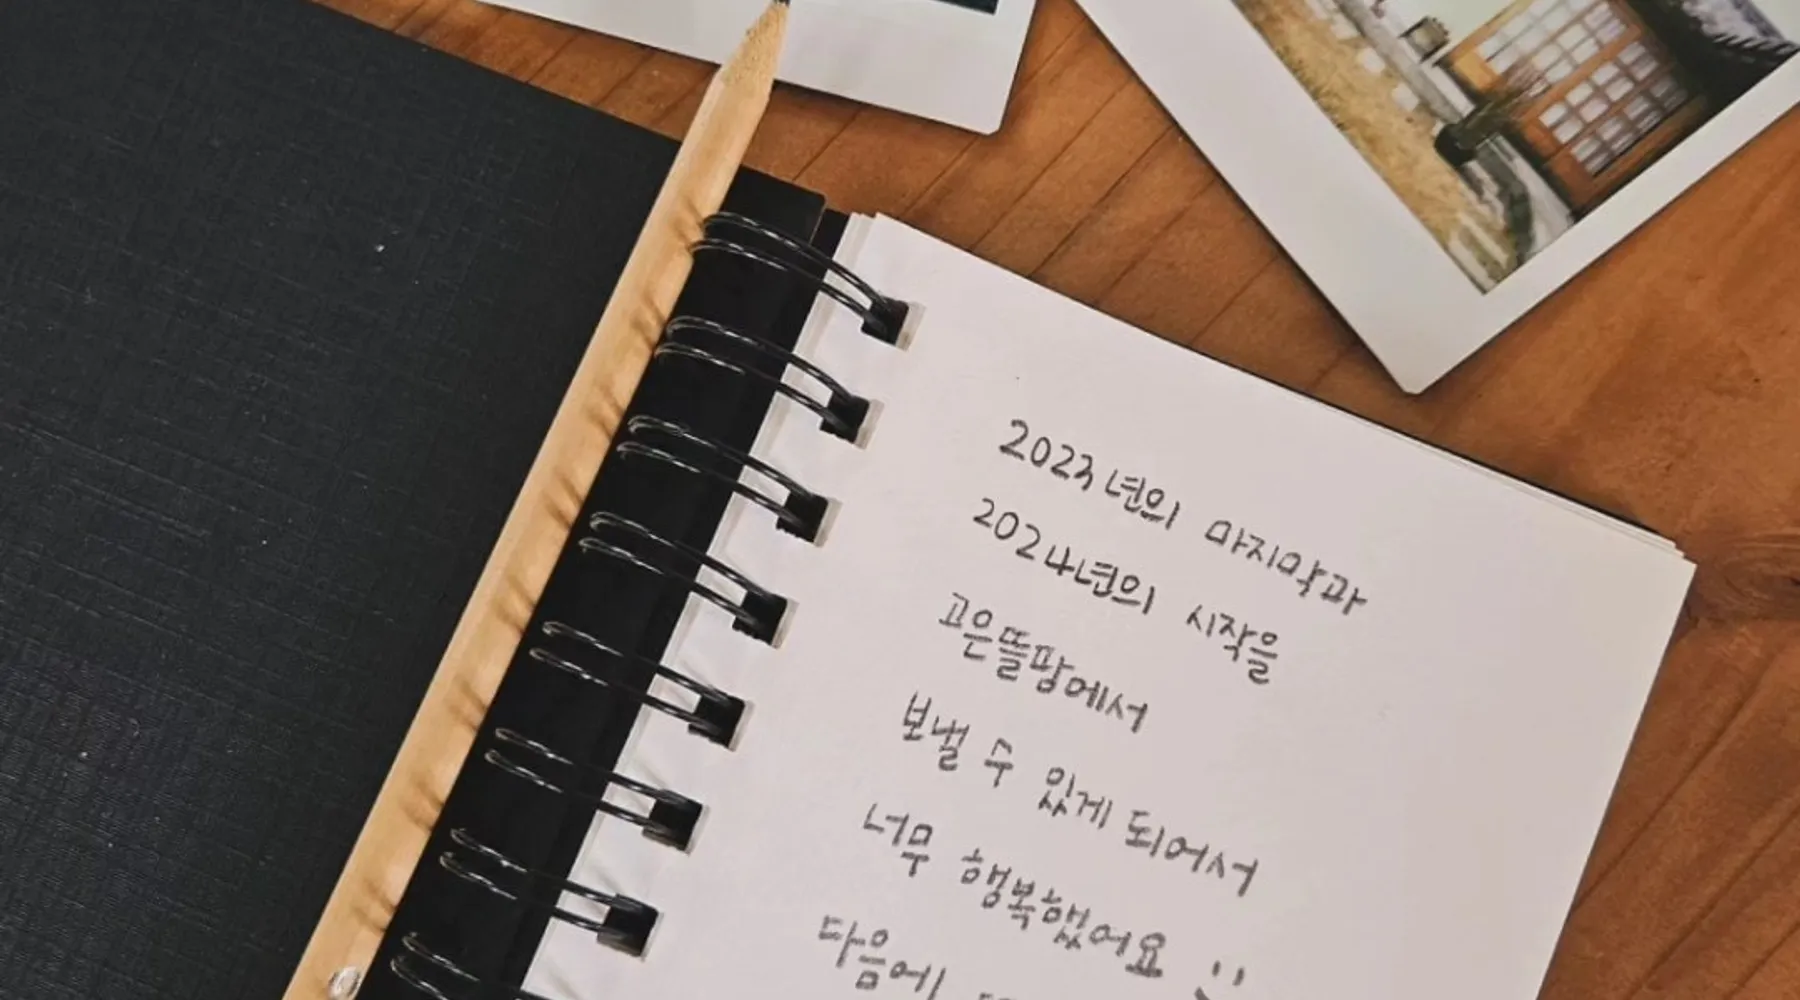 2023년의 마지막과
2024년의 시작을
고은뜰팡에서
보낼 수 있게 되어서
너무 행복했어요 :)
다음에